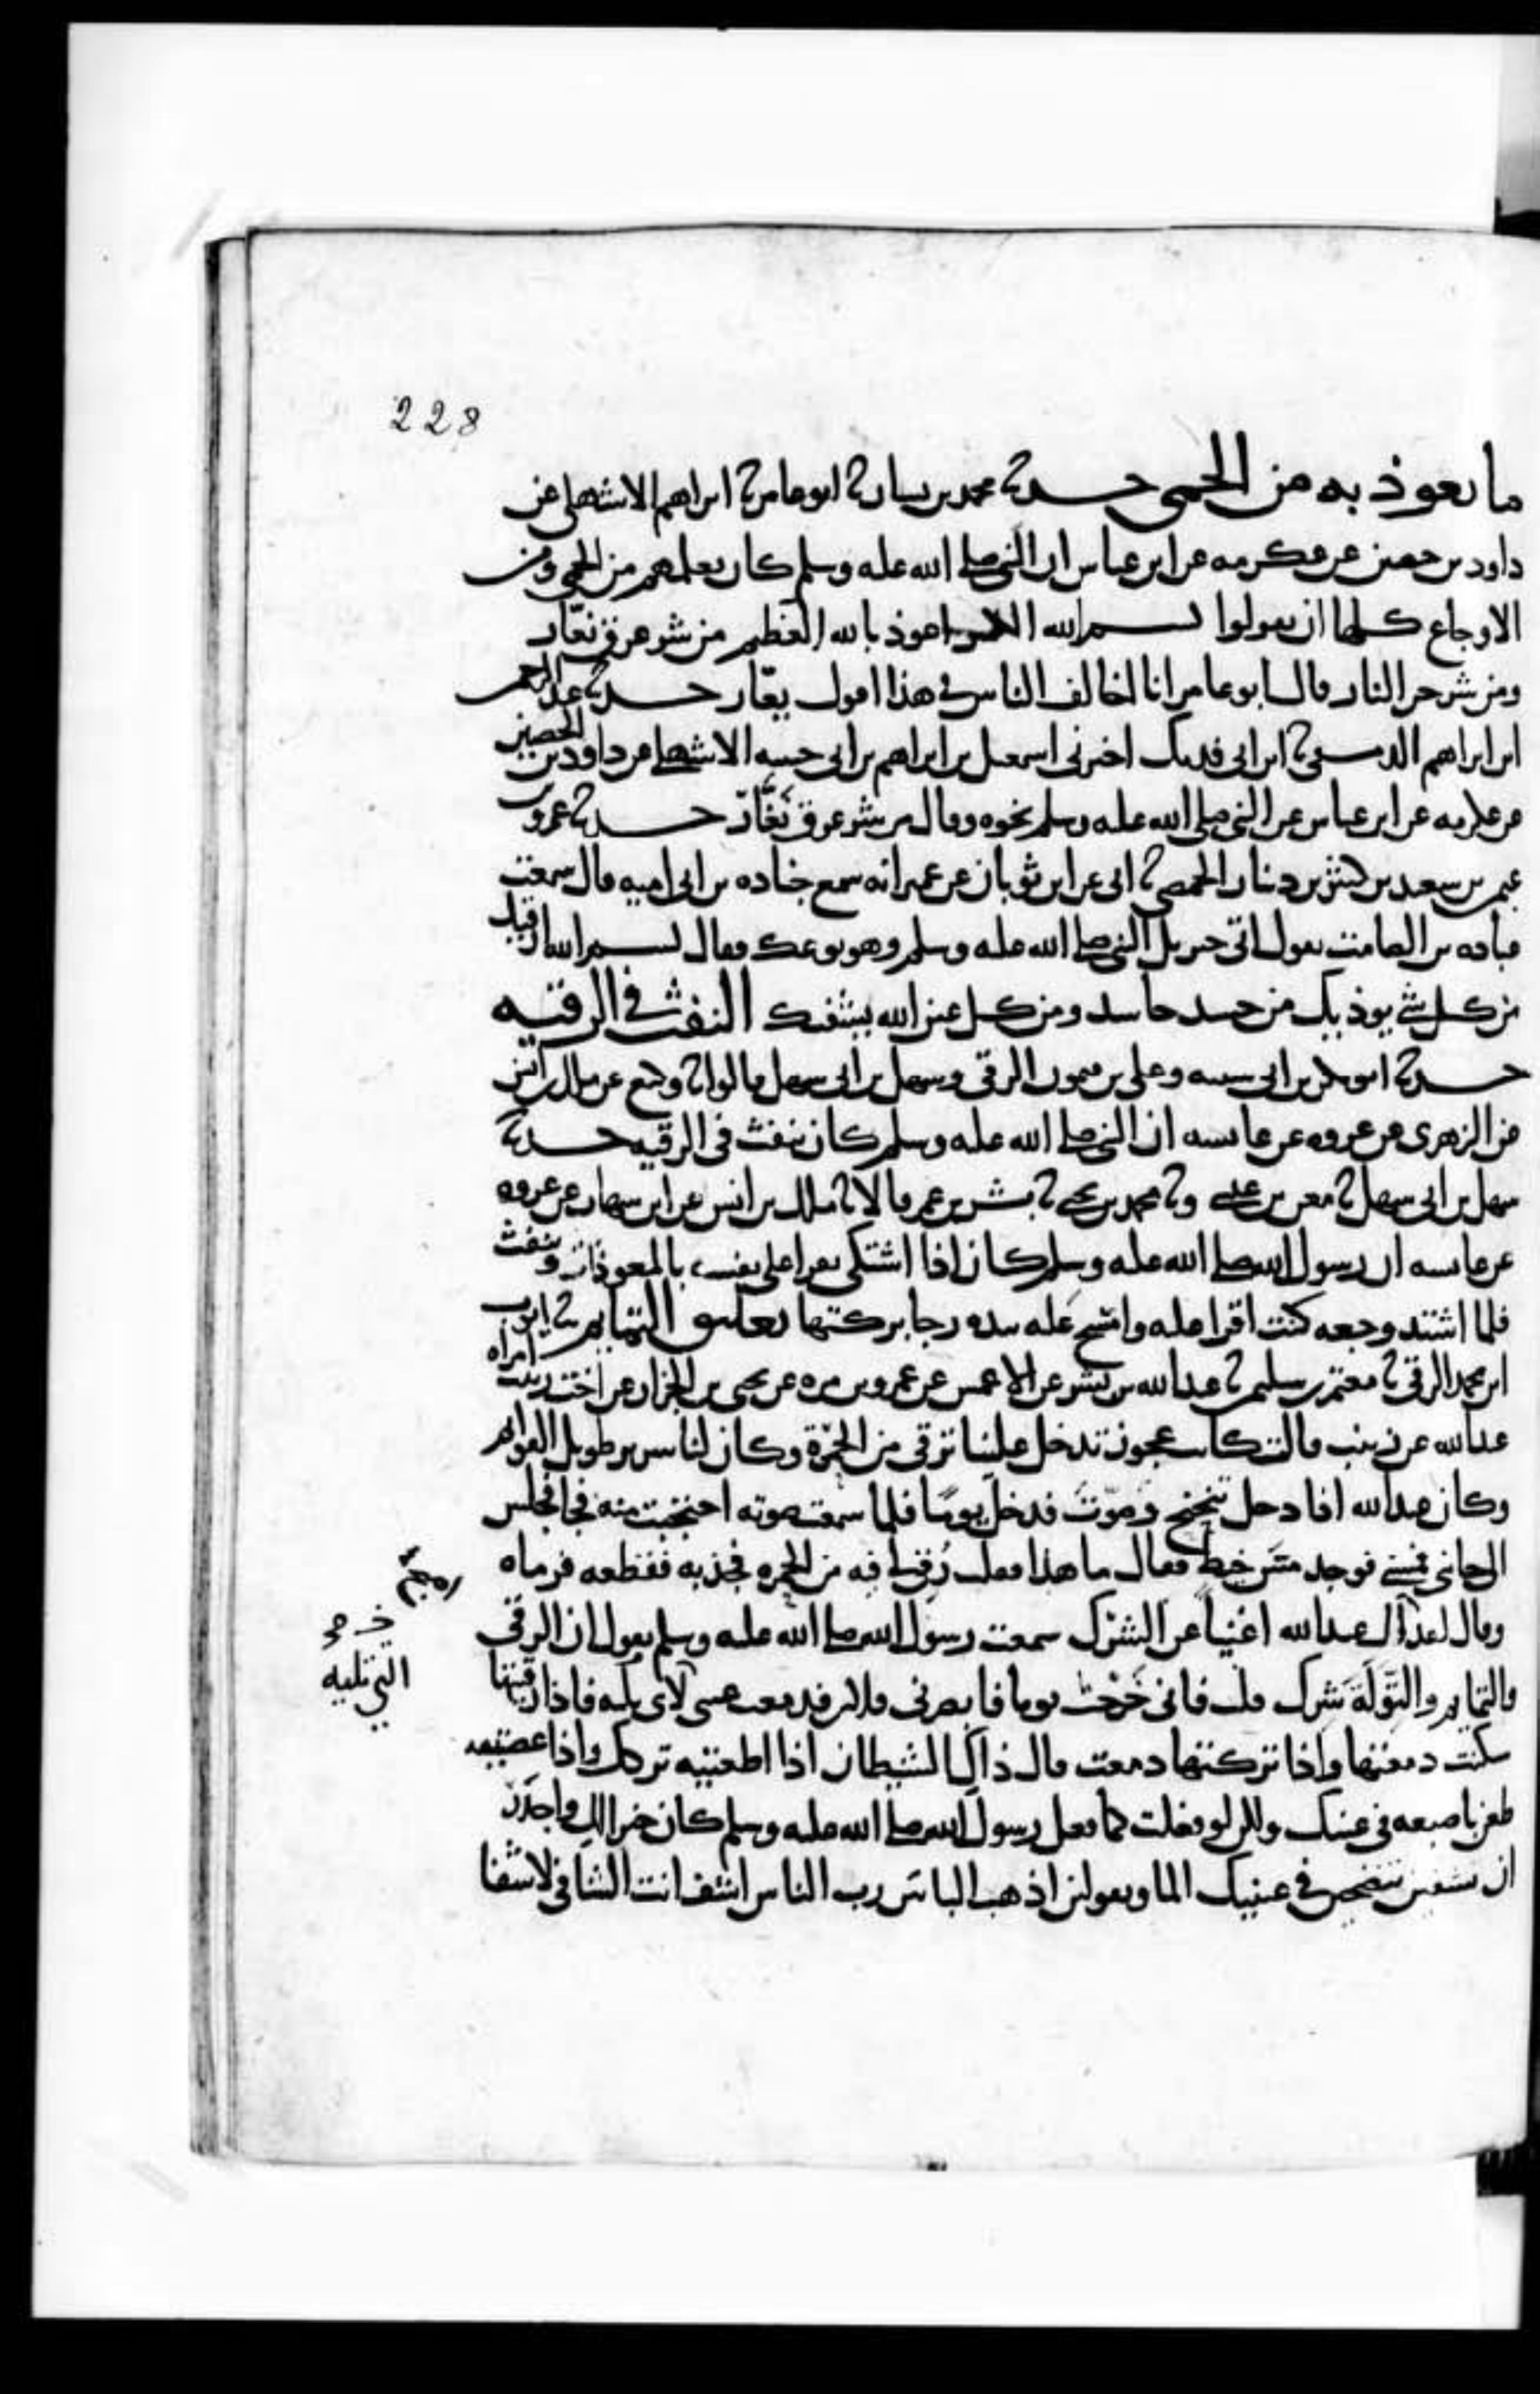 228
ما يعوذ به من الحمى حدثنا محمد بن بشار ثنا ابو عامر ثنا ابراهيم الاشهلي عن
داود بن حصين عن عكرمه عن ابن عباس ان النبي صلى الله عليه وسلم كان يعلمهم من الحمى ومن
الاوجاع كلها ان يقولوا بسم الله الكبير اعوذ بالله العظيم من شر عرق نعّار
ومن شر حر النار قال ابو عامر انا اخالف الناس في هذا اقول يعّار حدثنا عبد الرحمن
ابن ابراهيم الدمشقي ثنا ابن ابي فديك اخبرني اسمعيل بن ابراهيم بن ابي حبيبه الاشهلي عن داود بن الحصين
عن عكرمه عن ابن عباس عن النبي صلى الله عليه وسلم نحوه وقال من شر عرق نَعَّار حدثنا عمرو بن
عثمن بن سعيد بن كثير بن دينار الحمصي ثنا ابي عن ابن ثوبان عن عمير انه سمع جناده بن ابي اميه قال سمعت
عباده بن الصامت يقول اتى جبريل النبي صلى الله عليه وسلم وهو يوعك فقال بسم الله ارقيك
من كل شي يوذيك من حسد حاسد ومن كل عين الله يشفيك النفث في الرقيه
حدثنا ابو بكر بن ابي شيبه وعلي بن ميمون الرقي وسهل بن ابي سهل قالوا ثنا وكيع عن مالك بن انس
عن الزهري عن عروه عن عائشه ان النبي صلى الله عليه وسلم كان ينفث في الرقيه حدثنا
سهل بن ابي سهل ثنا معن بن عيسى وثنا محمد بن يحيى ثنا بشر بن عمر قالا ثنا ملك بن انس عن ابن شهاب عن عروه
عن عائشه ان رسول الله صلى الله عليه وسلم كان اذا اشتكى يقرا على نفسه بالمعوذات وينفث
فلما اشتد وجعه كنت اقرا عليه وامسح عليه بيده رجا بركتها تعليق التمايم ثنا ايوب
ابن محمد الرقي ثنا معتمر بن سليمن ثنا عبد الله بن بشر عن الاعمش عن عمرو بن مره عن يحيى بن الجزار عن اخت زينب امراه
عبد الله عن زينب قالت كانت عجوز تدخل علينا ترقي من الحمرة وكان لنا سرير طويل القوائم
وكان عبد الله اذا دخل تنحنح وصوّت فدخل يوما فلما سمعت صوته احتجبت منه فجا فجلس
الى جانبي فمسني فوجد مسّ خيط فقال ما هذا فقلت رُقي لي فيه من الحمره فجذبه فقطعه فرماه
وقال لقد آل عبد الله اغنيا عن الشرك سمعت رسول الله صلى الله عليه وسلم يقول ان الرقى
والتمايم والتِّوَلَة شرك قلت فاني خرجت يوما فابصرني فلان فدمعت عيني التي تليه فاذا رقيتها
سكنت دمعتها واذا تركتها دمعت قال ذاك الشيطان اذا اطعتيه تركك واذا عصيتيه
طعن باصبعه في عينك ولكن لو فعلت كما فعل رسول الله صلى الله عليه وسلم كان خيرا لك واجدر
ان تشفين تنضحين في عينيك الما وتقولين اذهب الباس رب الناس اشف انت الشافي لا شفا
التي تليه